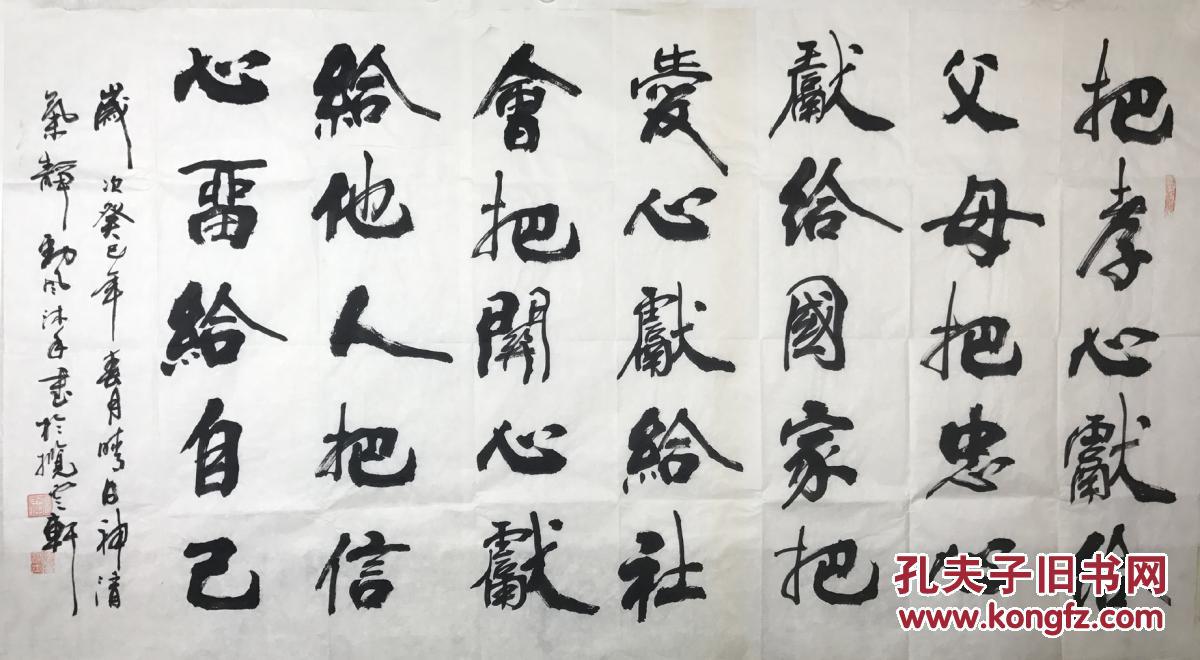 把孝心獻給
父母把忠心
獻給國家把
愛心獻給社
會把開心獻
給他人把信
心畱給自己
歲次癸巳年春月晴日神清
氣靜勁風沐手書於攬雲軒
孔夫子旧书网
www.kongfz.com